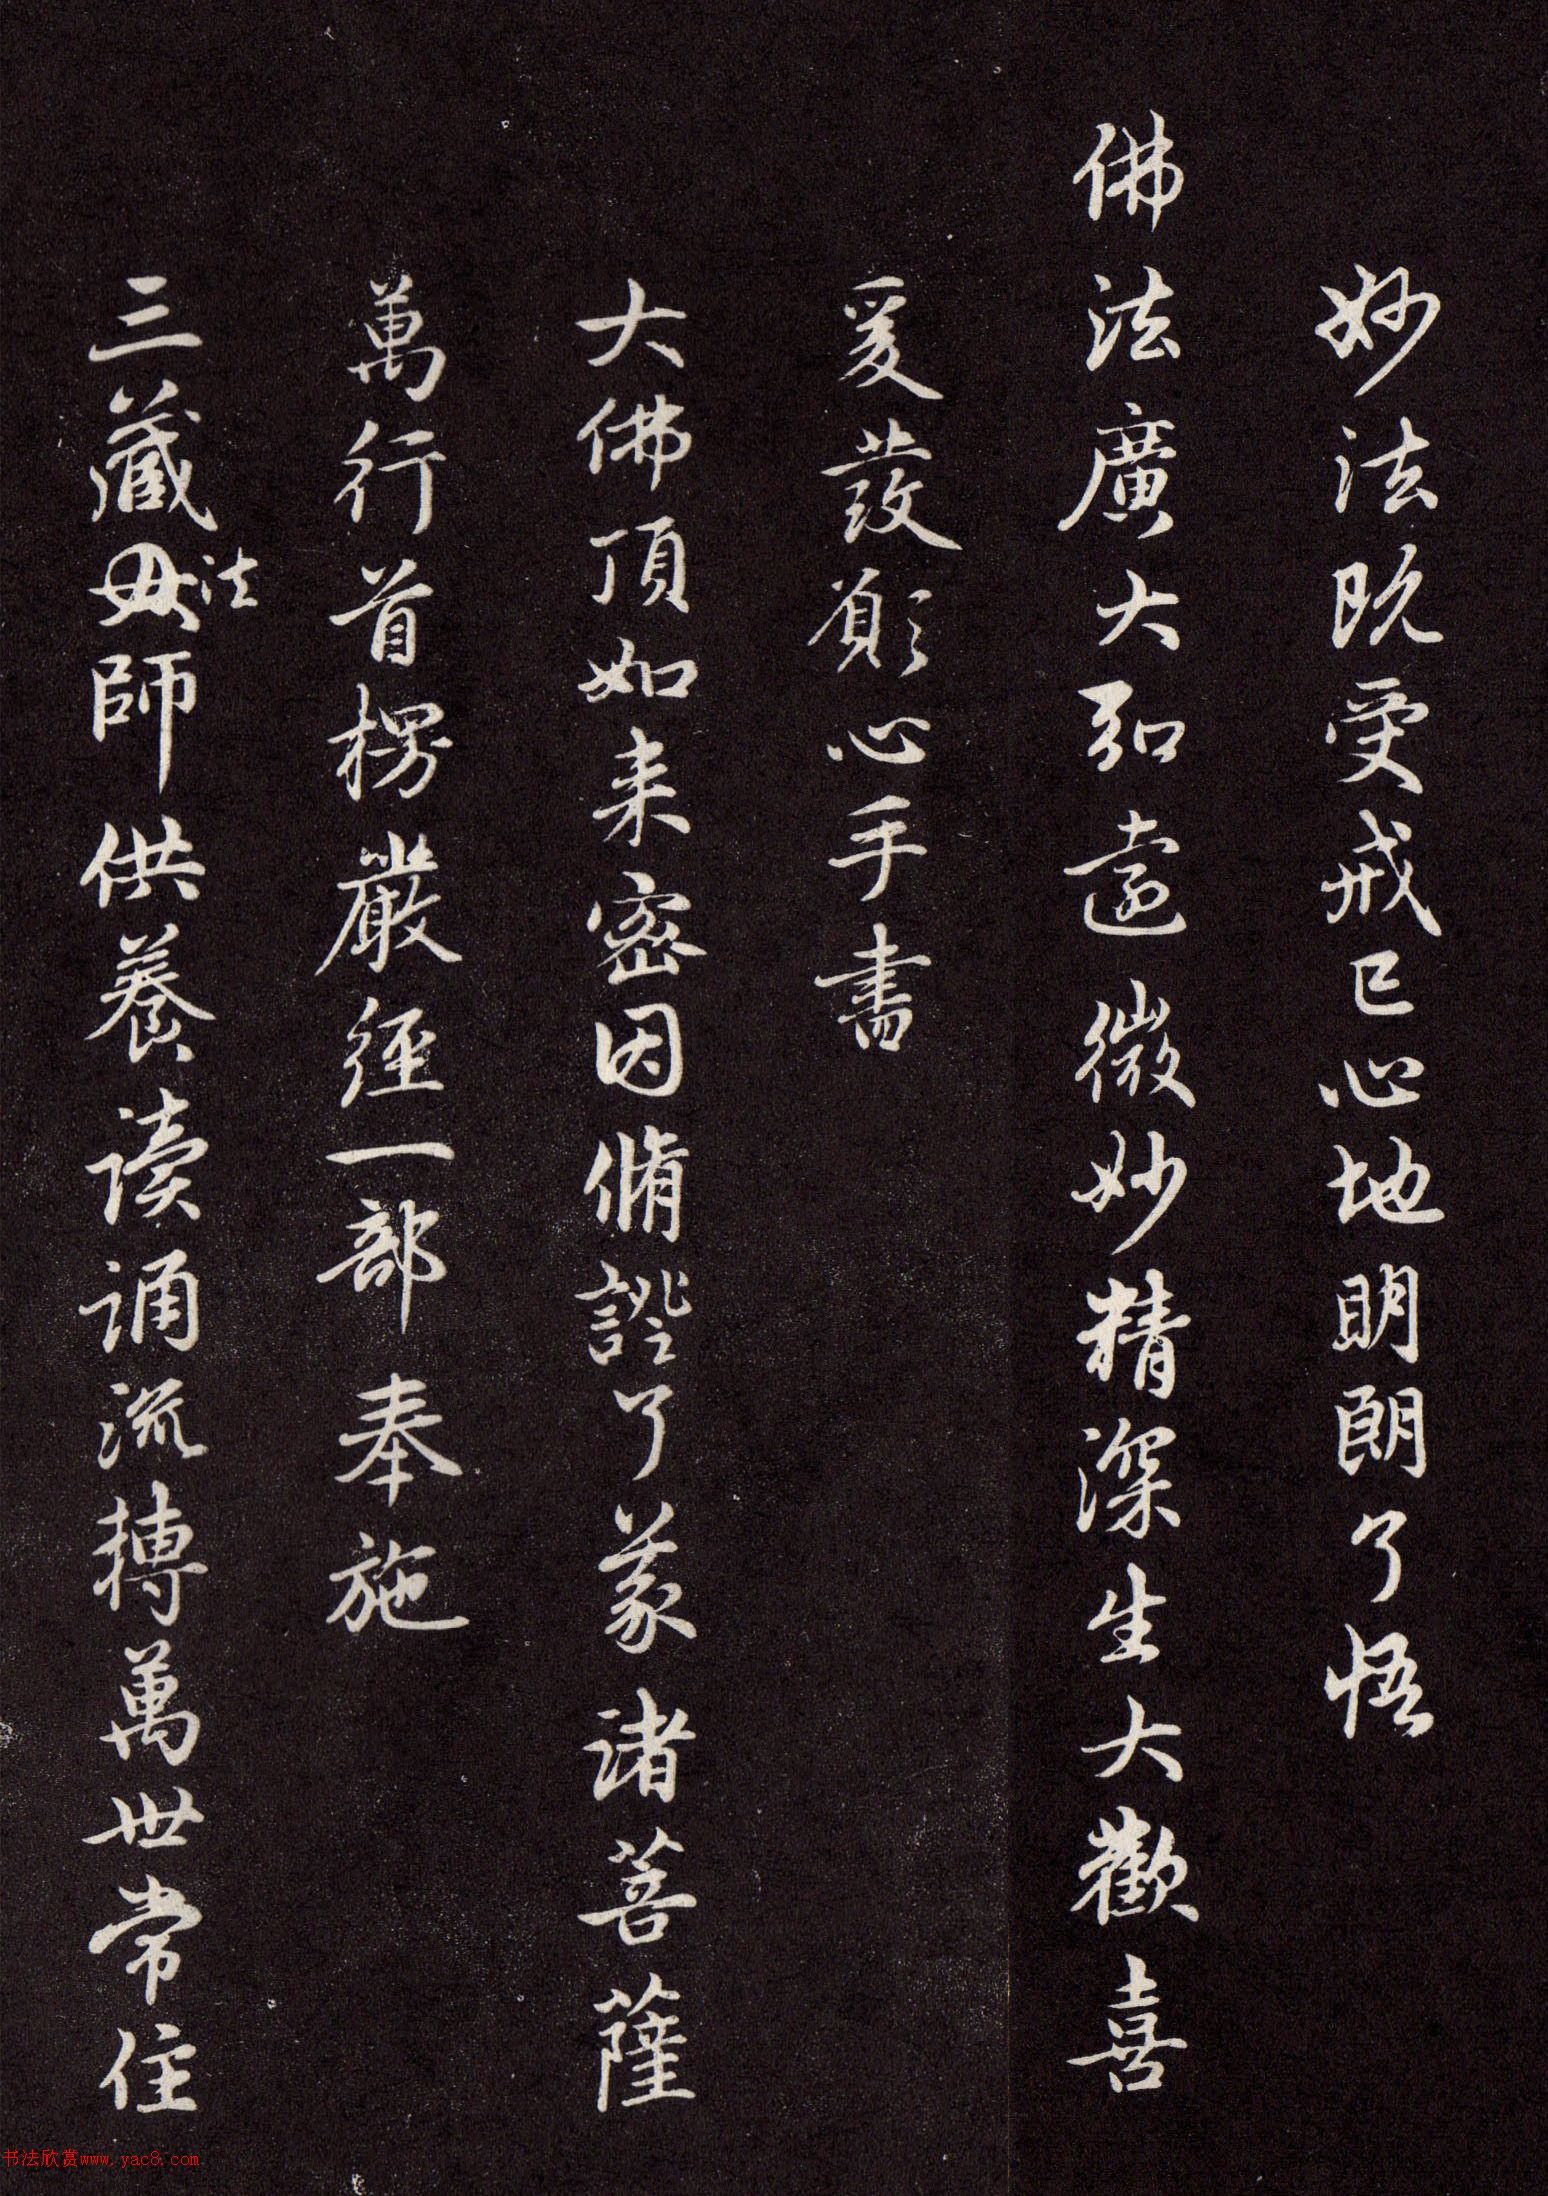 妙法既受戒已心地明朗了悟
佛法廣大弘遠微妙精深生大歡喜
爰發願心手書
大佛頂如来密因脩證了義諸菩薩
萬行首楞嚴經一部奉施
三藏毋法師供養讀誦流摶萬世常住
书法欣赏www.yac8.com